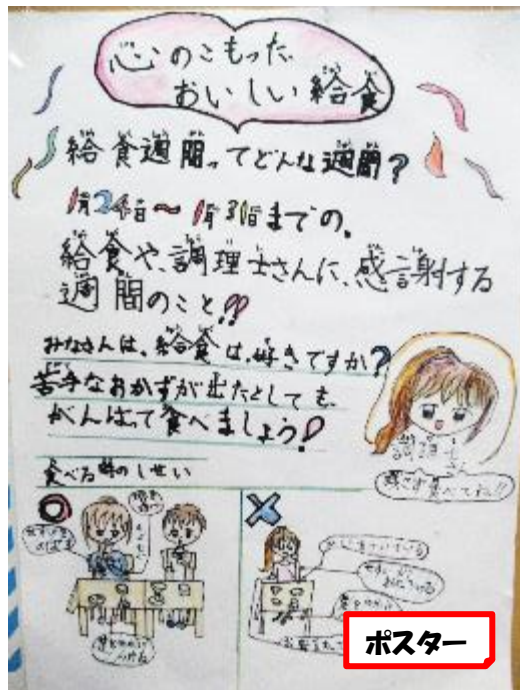 心のこもった
おいしい給食
給食週間ってどんな週間?
1月24日〜1月31日までの、
給食や、調理士さんに、感謝する
週間のこと!!
みなさんは、給食は、好きですか?
苦手なおかずが出たとしても、
がんばって食べましょう!
調理士さん
残さず食べてね!!
食べる時のしせい
ポスター